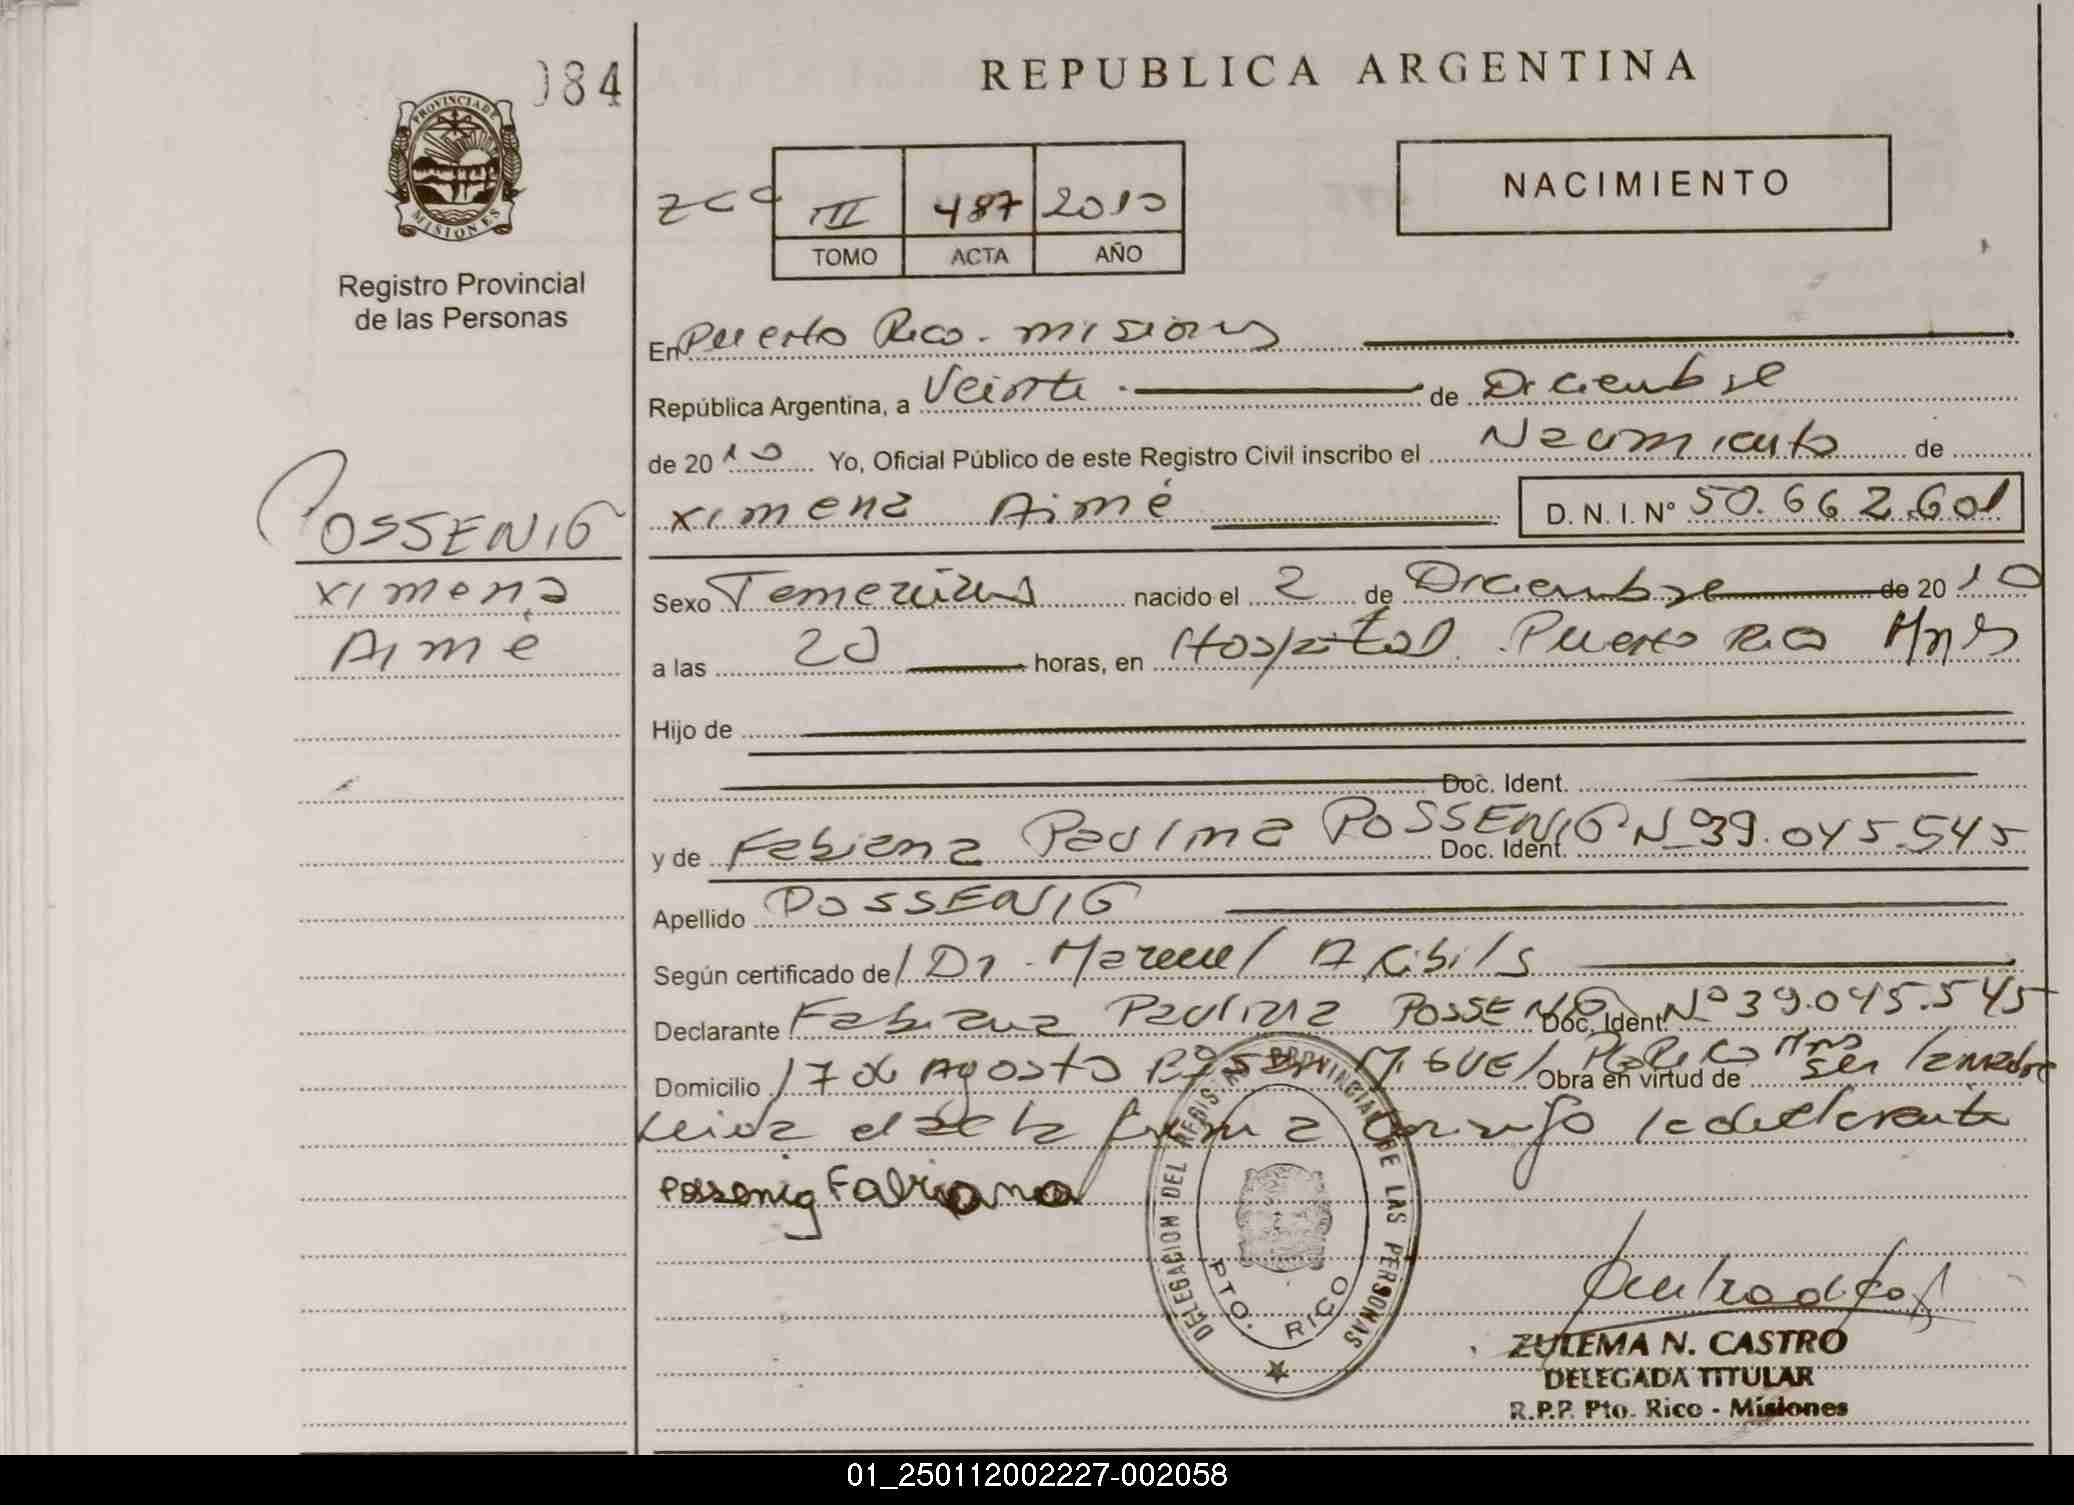 084
REPUBLICA ARGENTINA
PROVINCIA DE
MISIONES
Registro Provincial
de las Personas
NACIMIENTO
III 487 2010
TOMO ACTA AÑO
En Puerto Rico. Misiones
República Argentina, a Veinte de Diciembre
de 2010 Yo, Oficial Público de este Registro Civil inscribo el Nacimiento de
Ximena Aimé D. N. I. Nº 50.662.601
POSSENIG
Ximena
Aimé
Sexo Femenino nacido el 2 de Diciembre de 2010
a las 20 horas, en Hospital Puerto Rico Mnes
Hijo de
Doc. Ident.
y de Fabiana Paulina POSSENIG Doc. Ident. Nº 39.045.545
Apellido POSSENIG
Según certificado de Dr. Manuel
Declarante Fabiana Paulina POSSENIG Doc. Ident. Nº 39.045.545
Domicilio 17 de Agosto Bº Sn Miguel Pto Rico Mns Obra en virtud de ser la madre
Leida el acta firma conmigo la declarante
Possenig Fabiana
DELEGACION DEL REGISTRO PROVINCIAL DE LAS PERSONAS
PTO. RICO
ZULEMA N. CASTRO
DELEGADA TITULAR
R.P.P. Pto. Rico - Misiones
01_250112002227-002058